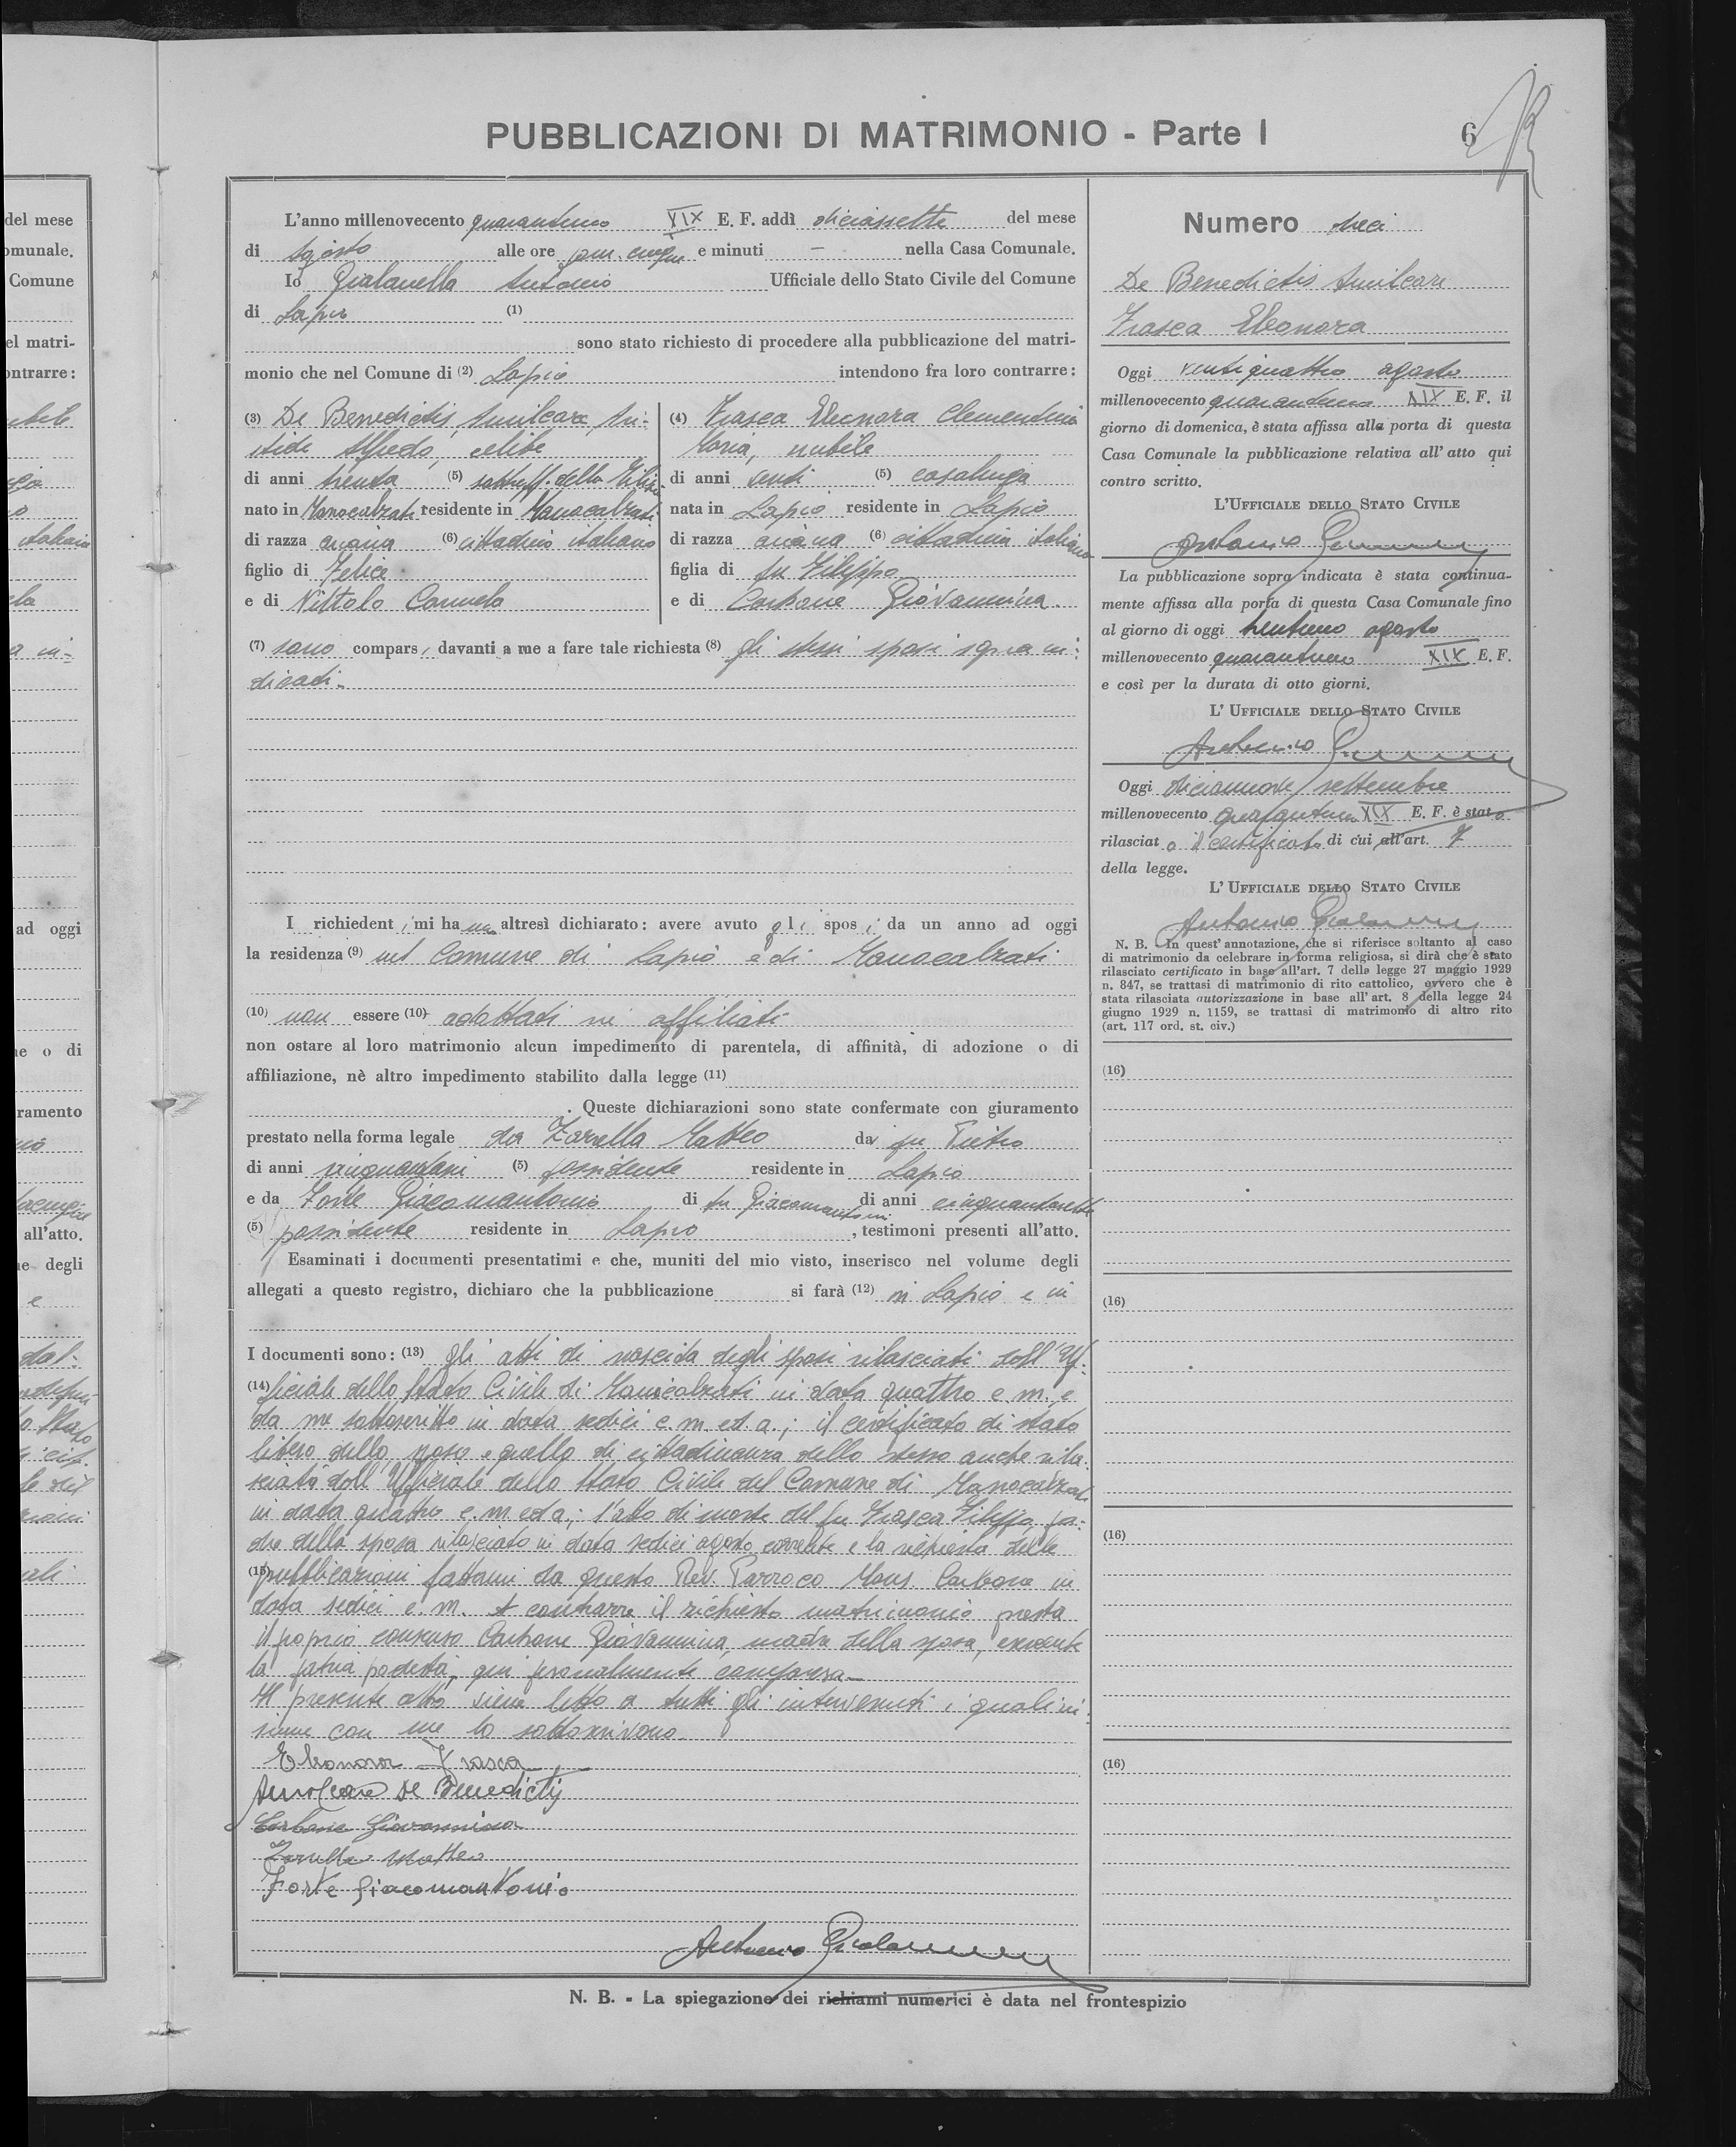 PUBBLICAZIONI DI MATRIMONIO - Parte I
6
L'anno millenovecento quarantuno XIX E. F. addì diciassette del mese
di Agosto alle ore pom. cinque e minuti — nella Casa Comunale.
Io Gialanella Antonio Ufficiale dello Stato Civile del Comune
di Lapio (1)
sono stato richiesto di procedere alla pubblicazione del matri-
monio che nel Comune di (2) Lapio intendono fra loro contrarre:
(3) De Benedictis Amilcare Ari-
stide Alfredo, celibe
di anni trenta (5) sottuff. della Miliz.
nato in Manocalzati residente in Manocalzati
di razza ariana (6) cittadino italiano
figlio di Felice
e di Nittolo Carmela
(4) Frasca Eleonora Clementina
Maria, nubile
di anni venti (5) casalinga
nata in Lapio residente in Lapio
di razza ariana (6) cittadina italiana
figlia di fu Filippo
e di Carbone Giovannina.
(7) sono compars i davanti a me a fare tale richiesta (8) gli stessi sposi sopra in-
dicati.
I richiedent i mi ha nno altresì dichiarato: avere avuto gli spos i da un anno ad oggi
la residenza (9) nel Comune di Lapio e di Manocalzati
(10) non essere (10) adottati nè affiliati
non ostare al loro matrimonio alcun impedimento di parentela, di affinità, di adozione o di
affiliazione, nè altro impedimento stabilito dalla legge (11)
. Queste dichiarazioni sono state confermate con giuramento
prestato nella forma legale da Zarrella Matteo da fu Pietro
di anni (5) possidente residente in Lapio
e da Forte Giacomantonio di fu Giacomantonio di anni cinquantasette
(5) possidente residente in Lapio , testimoni presenti all'atto.
Esaminati i documenti presentatimi e che, muniti del mio visto, inserisco nel volume degli
allegati a questo registro, dichiaro che la pubblicazione si farà (12) in Lapio e in
I documenti sono: (13) gli atti di nascita degli sposi rilasciati dall'Uf-
(14) ficiale dello Stato Civile di Manocalzati in data quattro c. m. e
da me sottoscritto in data sedici c. m. ed a.; il certificato di stato
libero dello sposo e quello di cittadinanza dello stesso anche rila-
sciato dall'Ufficiale dello Stato Civile del Comune di Manocalzati
in data quattro c. m. ed a; l'atto di morte del fu Frasca Filippo, pa-
dre della sposa rilasciato in data sedici agosto corrente e la richiesta delle
(15) pubblicazioni fattami da questo Rev. Parroco Mons. Carbone in
data sedici c. m. A contrarre il richiesto matrimonio presta
il proprio consenso Carbone Giovannina, madre della sposa, esercente
la patria podestà, qui personalmente comparsa.
Il presente atto viene letto a tutti gli intervenuti i quali in-
sieme con me lo sottoscrivono.
Eleonora Frasca
Amilcare De Benedictis
Carbone Giovannina
Zarrella Matteo
Forte Giacomantonio
Antonio Gialanella
Numero dieci
De Benedictis Amilcare
Frasca Eleonora
Oggi ventiquattro agosto
millenovecento quarantuno XIX E. F. il
giorno di domenica, è stata affissa alla porta di questa
Casa Comunale la pubblicazione relativa all'atto qui
contro scritto.
L'UFFICIALE DELLO STATO CIVILE
Antonio Gialanella
La pubblicazione sopra indicata è stata continua-
mente affissa alla porta di questa Casa Comunale fino
al giorno di oggi trentuno agosto
millenovecento quarantuno XIX E. F.
e così per la durata di otto giorni.
L'UFFICIALE DELLO STATO CIVILE
Antonio Gialanella
Oggi diciannove settembre
millenovecento quarantuno XIX E. F. è stato
rilasciat o il certificato di cui all'art. 7
della legge.
L'UFFICIALE DELLO STATO CIVILE
Antonio Gialanella
N. B. - In quest'annotazione, che si riferisce soltanto al caso
di matrimonio da celebrare in forma religiosa, si dirà che è stato
rilasciato certificato in base all'art. 7 della legge 27 maggio 1929
n. 847, se trattasi di matrimonio di rito cattolico, ovvero che è
stata rilasciata autorizzazione in base all'art. 8 della legge 24
giugno 1929 n. 1159, se trattasi di matrimonio di altro rito
(art. 117 ord. st. civ.)
(16)
(16)
(16)
(16)
N. B. - La spiegazione dei richiami numerici è data nel frontespizio